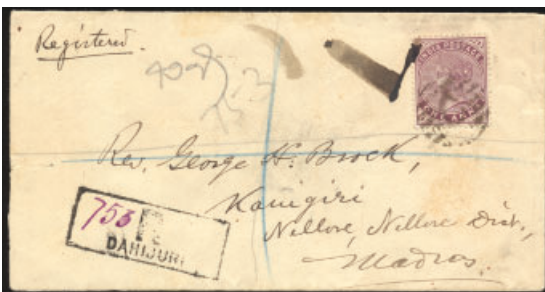 Registered.
INDIA POSTAGE
Rev. George H. Brock,
Kanigiri
Nellore, Nellore Dist.,
Madras.
753
R
DAHIJURI